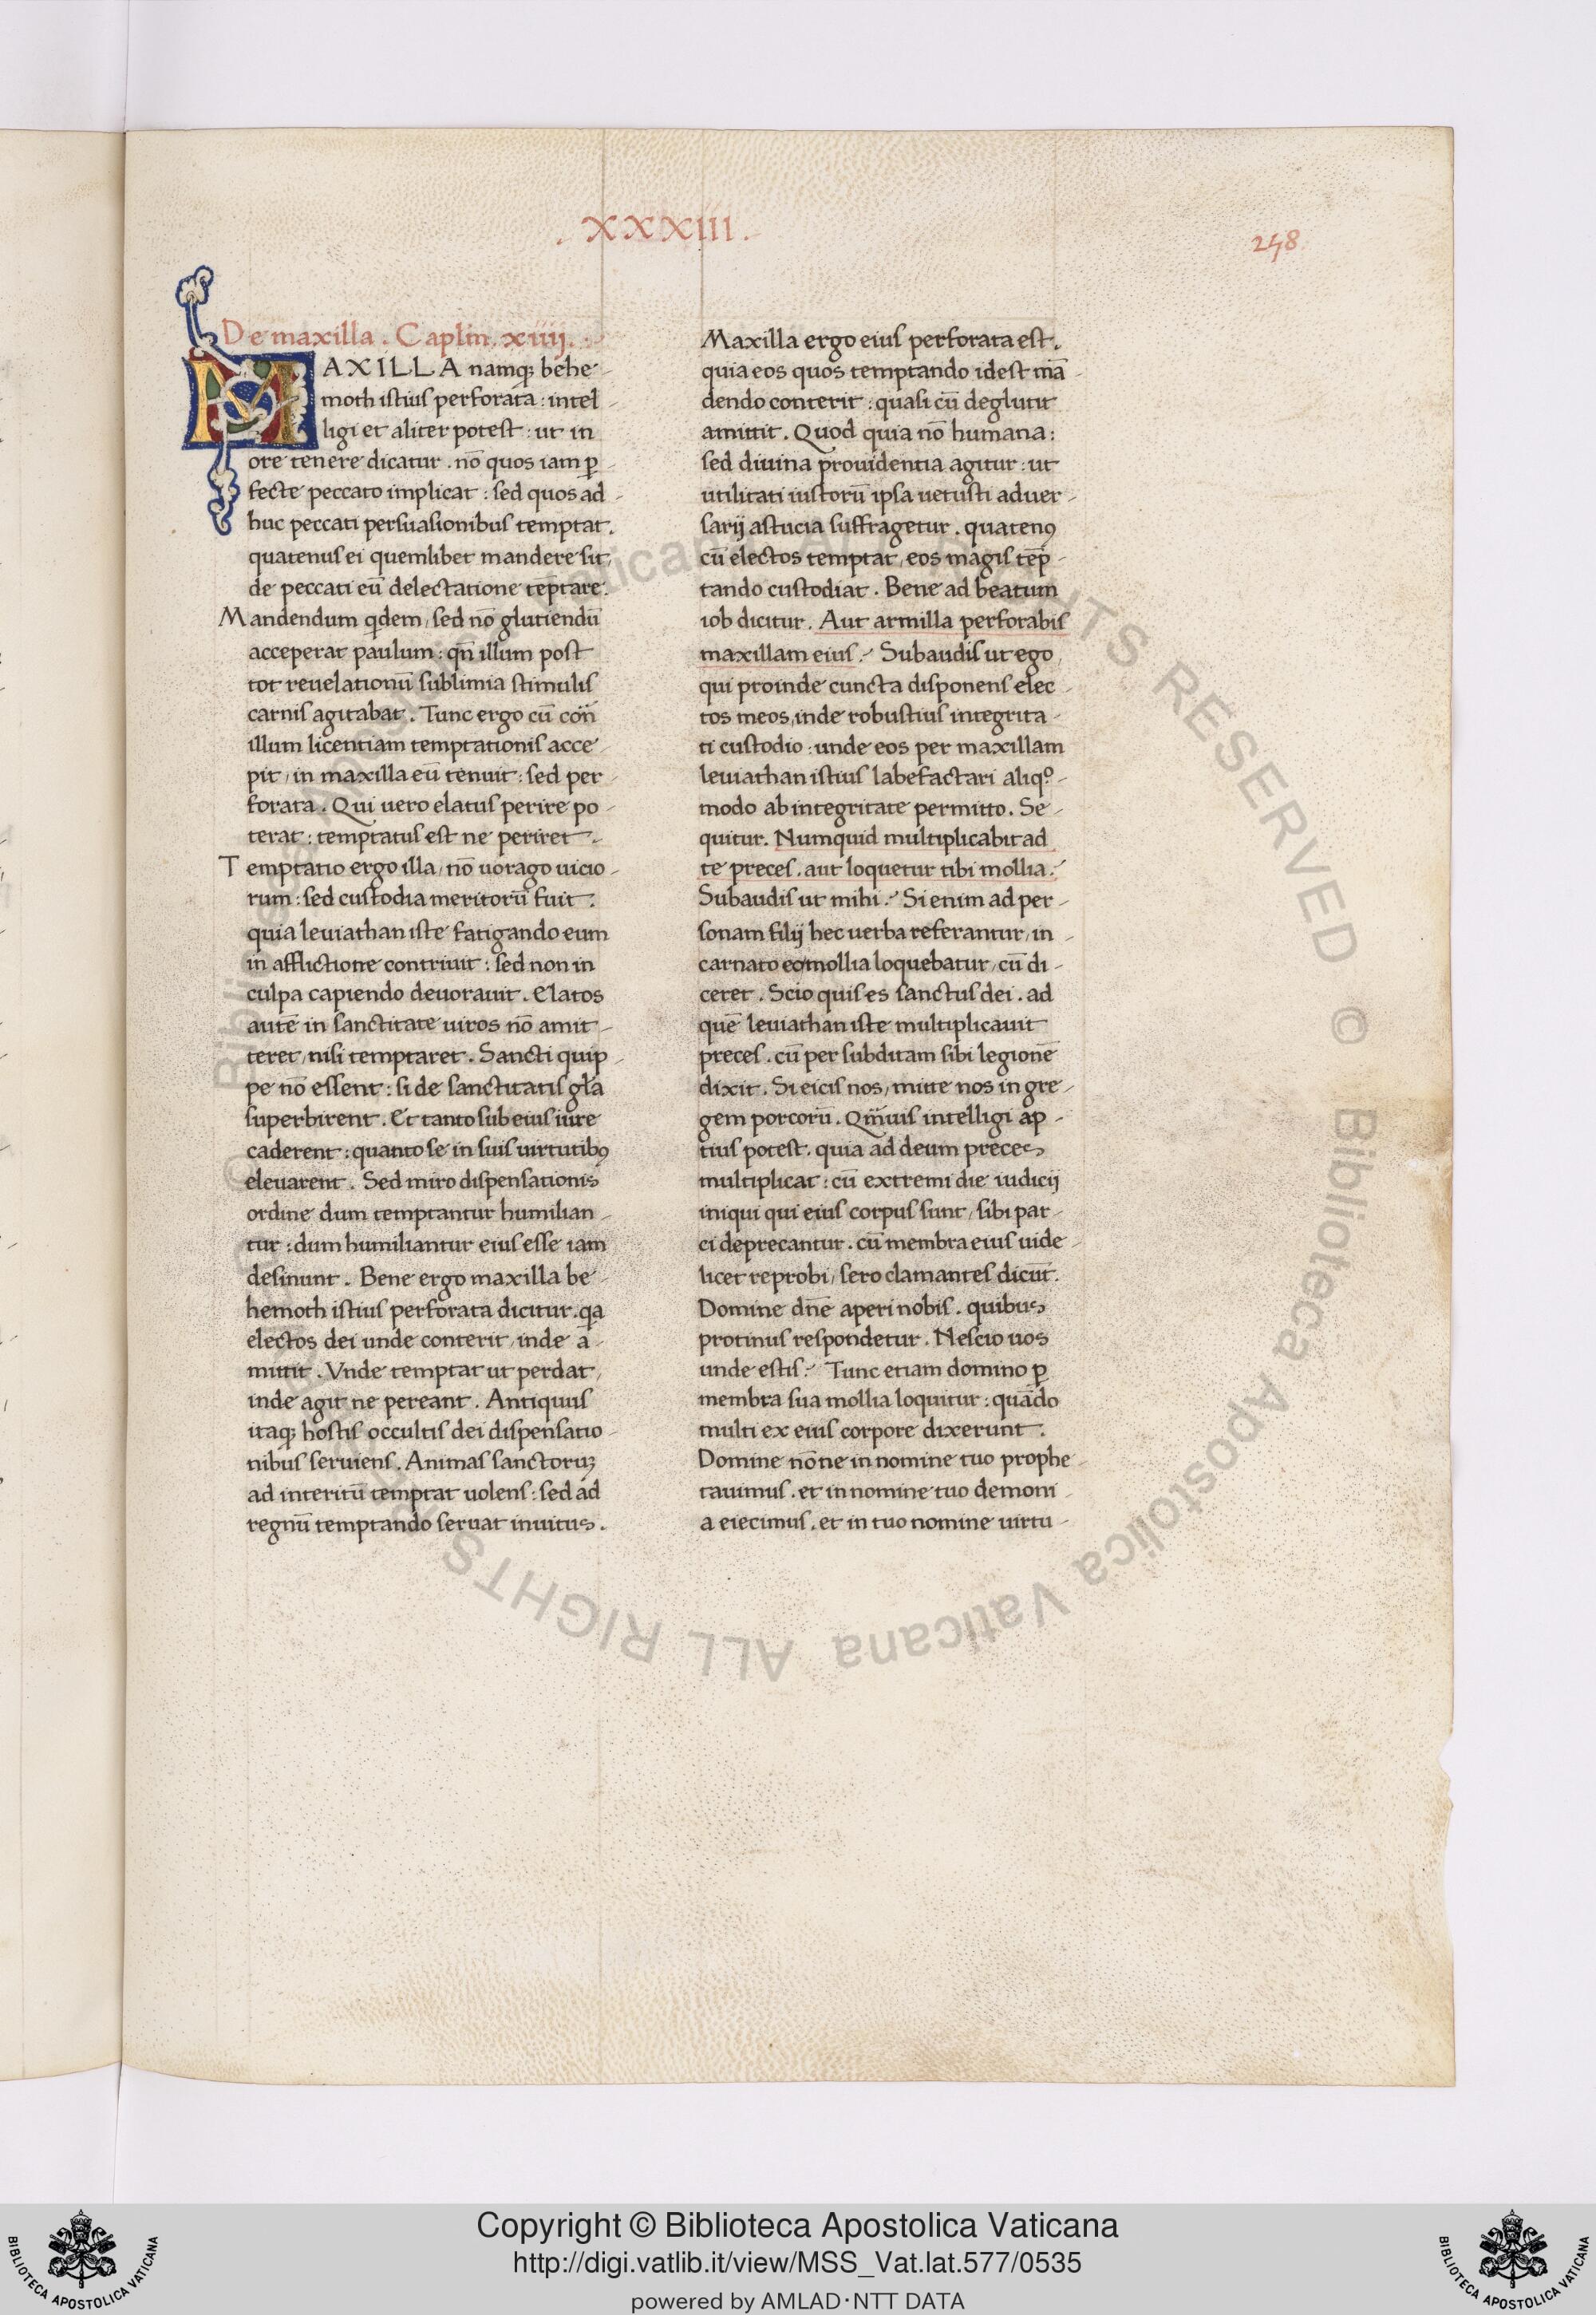 . XXXIII .
248
De maxilla . Caplm̅. xiiij .
MAXILLA namq; behe-
moth istius perforata : intel-
ligi et aliter potest : ut in
ore tenere dicatur . no̅ quos iam p̲-
fecte peccato implicat : sed quos ad-
huc peccati persuasionibus temptat .
quatenus ei quemlibet mandere sit,
de peccati eu̅ delectatione te̅ptare .
Mandendum qdem, sed no̅ glutiendu̅
acceperat paulum : qn̅ illum post
tot reuelationu̅ sublimia stimulis
carnis agitabat . Tunc ergo cu̅ con̅
illum licentiam temptationis acce-
pit, in maxilla eu̅ tenuit : sed per-
forata . Qui uero elatus perire po-
terat : temptatus est ne periret .
Temptatio ergo illa, no̅ uorago uicio-
rum : sed custodia meritoru̅ fuit .
quia leuiathan iste fatigando eum
in afflictione contriuit : sed non in
culpa capiendo deuorauit . Elatos
aute̅ in sanctitate uiros no̅ amit-
teret, nisi temptaret . Sancti quip-
pe no̅ essent : si de sanctitatis gl̅a
superbirent . Et tanto sub eius iure
caderent : quanto se in suis uirtutibꝰ
eleuarent . Sed miro dispensationis
ordine dum temptantur humilian-
tur : dum humiliantur eius esse iam
desinunt . Bene ergo maxilla be-
hemoth istius perforata dicitur . qa
electos dei unde conterit, inde a-
mittit . Vnde temptat ut perdat,
inde agit ne pereant . Antiquus
itaq; hostis occultis dei dispensatio-
nibus seruiens . Animas sanctoruꝫ
ad interitu̅ temptat uolens : sed ad
regnu̅ temptando seruat inuitus .
Maxilla ergo eius perforata est .
quia eos quos temptando idest ma̅-
dendo conterit : quasi cu̅ deglutit
amittit . Quod quia no̅ humana :
sed diuina prouidentia agitur : ut
utilitati iustoru̅ ipsa uetusti aduer-
sarij astucia suffragetur . quatenꝰ
cu̅ electos temptat, eos magis te̅p-
tando custodiat . Bene ad beatum
iob dicitur . Aut armilla perforabis
maxillam eius . Subaudis ut ego
qui proinde cuncta disponens elec-
tos meos, inde robustius integrita-
ti custodio : unde eos per maxillam
leuiathan istius labefactari aliqº-
modo ab integritate permitto . Se-
quitur . Numquid multiplicabit ad
te preces . aut loquetur tibi mollia .
Subaudis ut mihi . Si enim ad per-
sonam filij hec uerba referantur, in-
carnato eo mollia loquebatur, cu̅ di-
ceret . Scio quis es sanctus dei . ad
que̅ leuiathan iste multiplicauit
preces . cu̅ per subditam sibi legione̅
dixit . Si eicis nos, mitte nos in gre-
gem porcoru̅ . Qm̅uis intelligi ap-
tius potest . quia ad deum preces
multiplicat : cu̅ extremi die iudicij
iniqui qui eius corpus sunt, sibi par-
ci deprecantur . cu̅ membra eius uide-
licet reprobi, sero clamantes dicu̅t .
Domine dn̅e aperi nobis . quibus
protinus respondetur . Nescio uos
unde estis . Tunc etiam domino p̲
membra sua mollia loquitur : qua̅do
multi ex eius corpore dixerunt .
Domine no̅ne in nomine tuo prophe-
tauimus . et in nomine tuo demoni-
a eiecimus . et in tuo nomine uirtu-
© Biblioteca Apostolica Vaticana ALL RIGHTS RESERVED
Copyright © Biblioteca Apostolica Vaticana
http://digi.vatlib.it/view/MSS_Vat.lat.577/0535
powered by AMLAD·NTT DATA
BIBLIOTECA APOSTOLICA VATICANA
BIBLIOTECA APOSTOLICA VATICANA